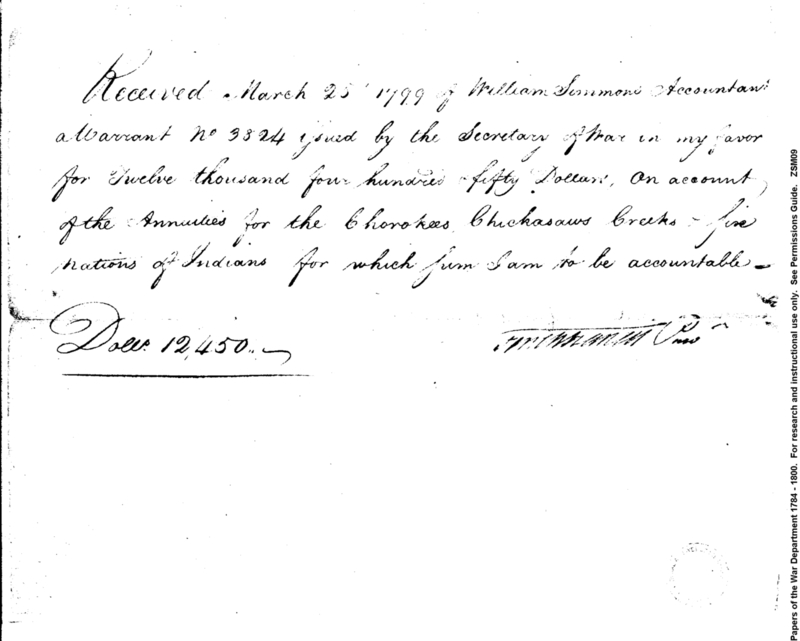 Received March 25 1799 of William Simmons Accountant
a Warrant No 3324 issued by the Secretary of War in my favor
for Twelve thousand four hundred fifty Dollars, On account
of the Annuities for the Cherokees Chickasaws Creeks & five
Nations of Indians for which sum I am to be accountable
Dolls. 12,450..
Papers of the War Department 1784 - 1800. For research and instructional use only. See Permissions Guide. ZSM09